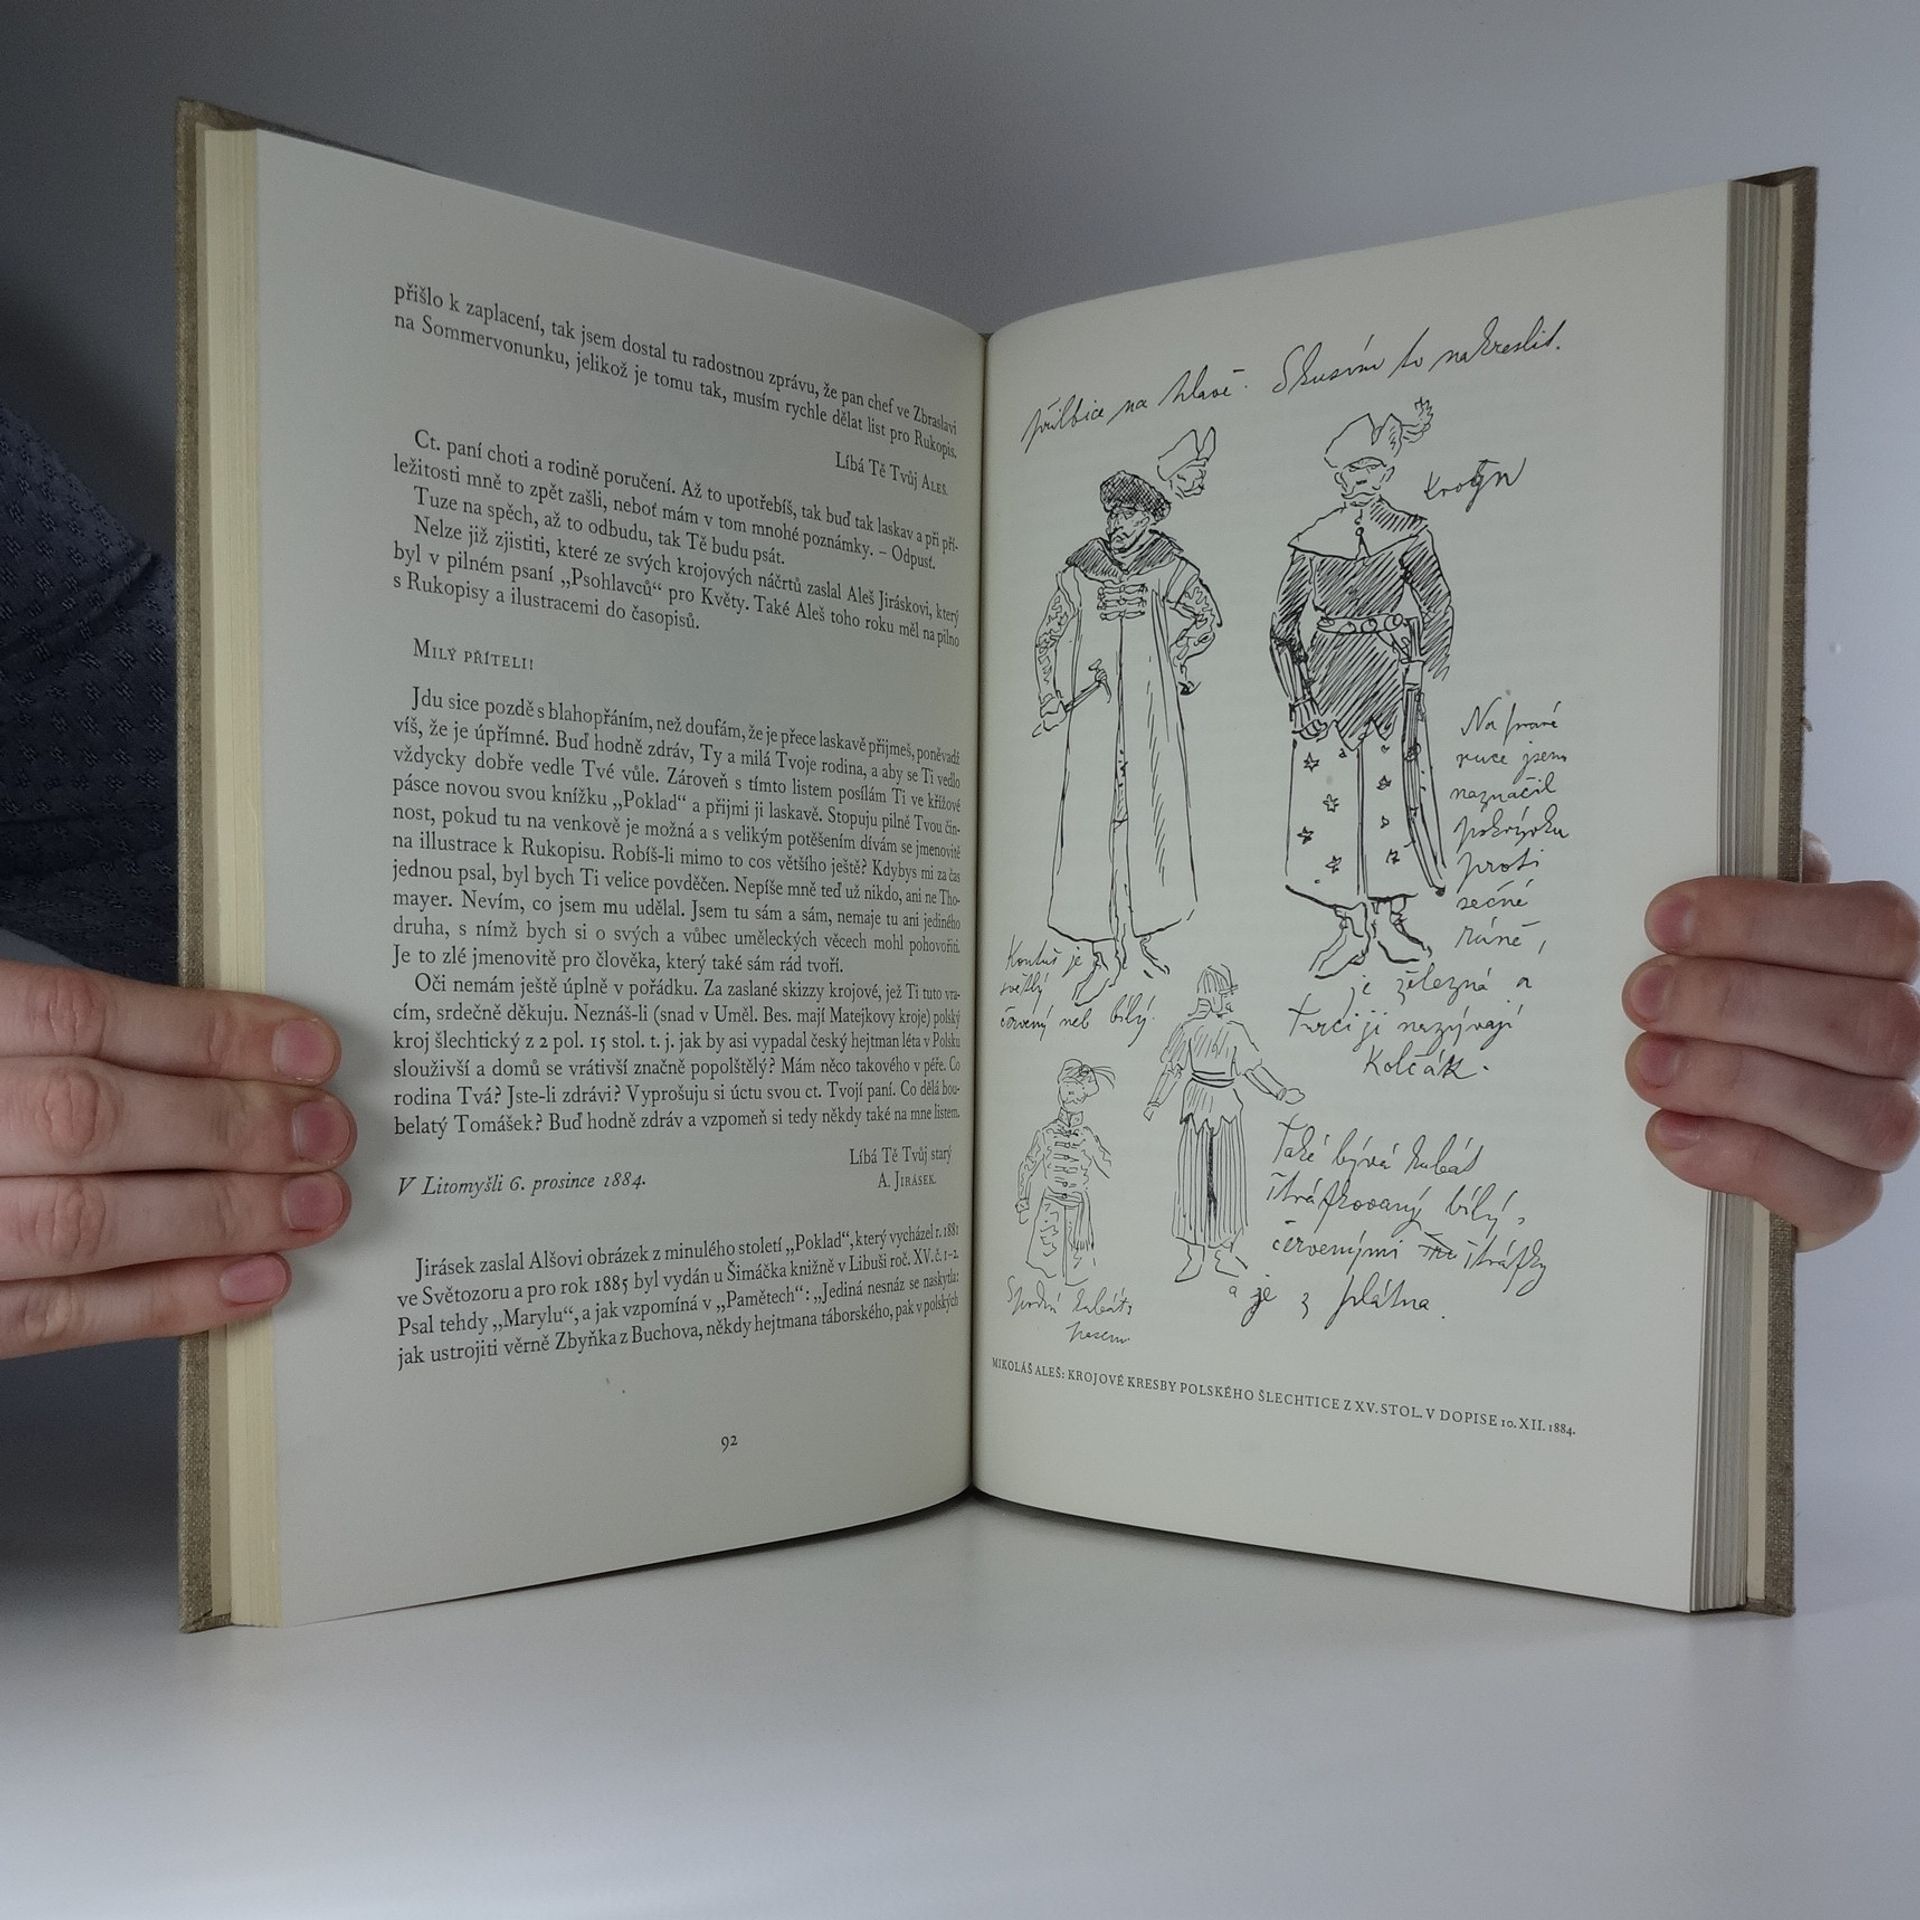 přišlo k zaplacení, tak jsem dostal tu radostnou zprávu, že pan chef ve Zbraslavi
na Sommervonunku, jelikož je tomu tak, musím rychle dělat list pro Rukopis.
Líbá Tě Tvůj Aleš.
Ct. paní choti a rodině poručení. Až to upotřebíš, tak buď tak laskav a při pří-
ležitosti mně to zpět zašli, neboť mám v tom mnohé poznámky. – Odpusť.
Tuze na spěch, až to odbudu, tak Tě budu psát.
Nelze již zjistiti, které ze svých krojových náčrtů zaslal Aleš Jiráskovi, který
byl v pilném psaní „Psohlavců“ pro Květy. Také Aleš toho roku měl na pilno
s Rukopisy a ilustracemi do časopisů.
Milý příteli!
Jdu sice pozdě s blahopřáním, než doufám, že je přece laskavě přijmeš, poněvadž
víš, že je úpřímné. Buď hodně zdráv, Ty a milá Tvoje rodina, a aby se Ti vedlo
vždycky dobře vedle Tvé vůle. Zároveň s tímto listem posílám Ti ve křížové
pásce novou svou knížku „Poklad“ a přijmi ji laskavě. Stopuju pilně Tvou čin-
nost, pokud tu na venkově je možná a s velikým potěšením dívám se jmenovitě
na illustrace k Rukopisu. Robíš-li mimo to cos většího ještě? Kdybys mi za čas
jednou psal, byl bych Ti velice povděčen. Nepíše mně teď už nikdo, ani ne Tho-
mayer. Nevím, co jsem mu udělal. Jsem tu sám a sám, nemaje tu ani jediného
druha, s nímž bych si o svých a vůbec uměleckých věcech mohl pohovořiti.
Je to zlé jmenovitě pro člověka, který také sám rád tvoří.
Oči nemám ještě úplně v pořádku. Za zaslané skizzy krojové, jež Ti tuto vra-
cím, srdečně děkuju. Neznáš-li (snad v Uměl. Bes. mají Matejkovy kroje) polský
kroj šlechtický z 2 pol. 15 stol. t. j. jak by asi vypadal český hejtman léta v Polsku
slouživší a domů se vrátivší značně popolštělý? Mám něco takového v péře. Co
rodina Tvá? Jste-li zdrávi? Vyprošuju si úctu svou ct. Tvojí paní. Co dělá bou-
belatý Tomášek? Buď hodně zdráv a vzpomeň si tedy někdy také na mne listem.
Líbá Tě Tvůj starý
A. Jirásek.
V Litomyšli 6. prosince 1884.
Jirásek zaslal Alšovi obrázek z minulého století „Poklad“, který vycházel r. 1881
ve Světozoru a pro rok 1885 byl vydán u Šimáčka knižně v Libuši roč. XV. č. 1-2.
Psal tehdy „Marylu“, a jak vzpomíná v „Pamětech“: „Jediná nesnáz se naskytla:
jak ustrojiti věrně Zbyňka z Buchova, někdy hejtmana táborského, pak v polských
92
přilbice na hlavě. Skusím to nakreslit.
Na pravé
ruce jsem
naznačil
pokrývku
proti
sečné
ráně,
je železná a
Turci ji nazývají
Kolčák.
Kontuš je
světlý
červený neb bílý.
Také bývá kabát
štráfkovaný bílý,
červenými štráfky
a je z plátna.
Spodní kabát s
pasem
MIKOLÁŠ ALEŠ: KROJOVÉ KRESBY POLSKÉHO ŠLECHTICE Z XV. STOL. V DOPISE 10. XII. 1884.